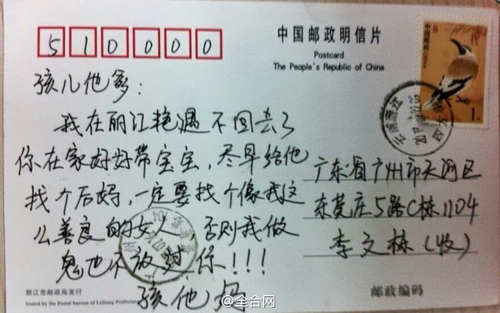 510000
中国邮政明信片
Postcard
The People's Republic of China
孩儿他爹：
我在丽江艳遇不回去了
你在家好好带宝宝，尽早给他
找个后妈，一定要找个像我这
么善良的女人 否则我做
鬼也不放过你！！！
孩他妈
广东省广州市天河区
东莞庄5路C栋1104
李文栋（收）
丽江市邮政局发行
Issued by the Postal bureau of Lijiang Prefecture
邮政编码
@全合网